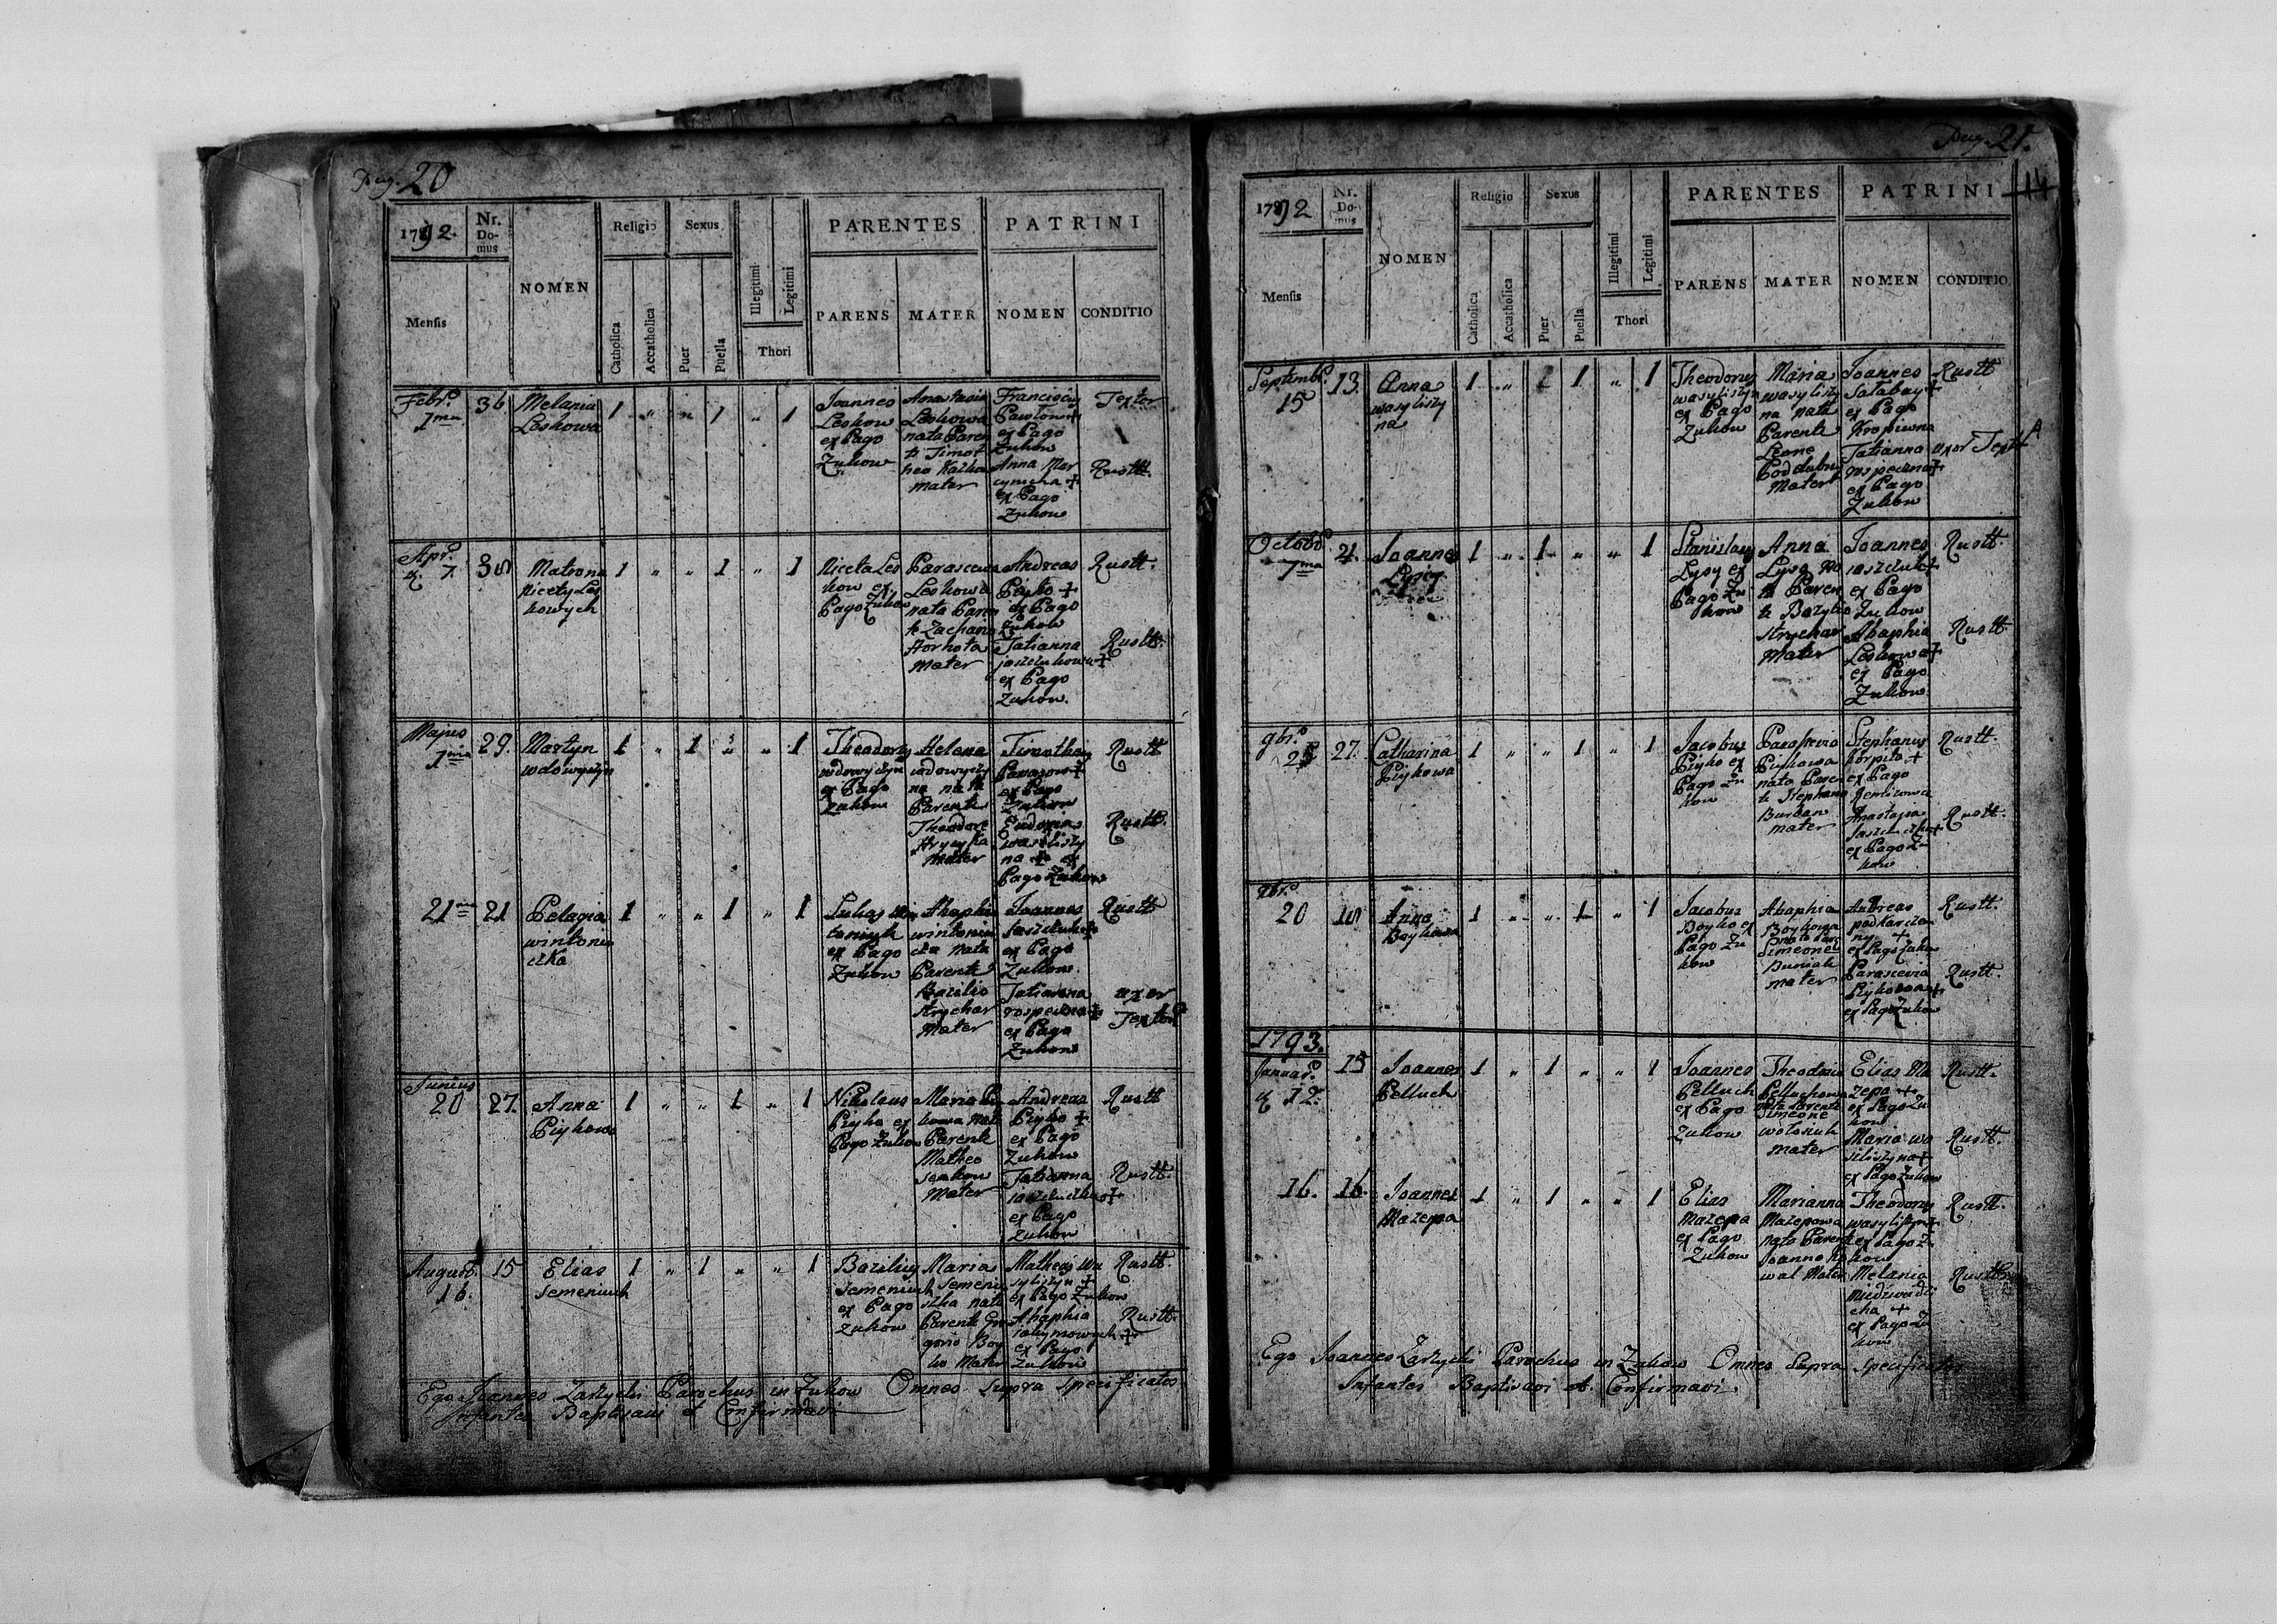 Pag. 20
1792.
Nr. Domus
NOMEN
Religio
Sexus
PARENTES
PATRINI
Mensis
Catholica
Accatholica
Puer
Puella
Illegitimi
Legitimi
Thori
PARENS
MATER
NOMEN
CONDITIO
Febr. 1ma
36
Melania
Leskowa
1 " " 1 " 1
Joannes
Leskow
ex Pago
Zukow
Anastasia
Leskowa
nata Paren
te Timot
heo
Mater
Francisci
Pawlow +
ex Pago
Zukow
Anna Mar
+
ex Pago
Zukow
Textor
Rustt.
Apr.
7.
Matrona
Nicety Les
kowych
1 " " 1 " 1
Niceta Les
kow ex
Pago Zukow
Parascewa
Leskowa
nata Paren
te Zachario
Horhota
Mater
Andreas
Piyko +
ex Pago
Zukow
Tatianna
joszczukowa +
ex Pago
Zukow.
Rustt.
Rustt.
Majus
1ma
29.
Martyn
wdowyczyn
1 " 1 " " 1
Theodorus
wdowyczyn
ex Pago
Zukow
Helena
wdowyczy
na nata
Parente
Theodore
Mater
Timotheus
+
ex Pago
Zukow
Eudoxia
wasiliszy
na + ex
Pago Zukow
Rustt.
Rustt.
21ma
21
Pelagia
wintonia
czka
1 " " 1 " 1
Lukas win
toniuk
ex Pago
Zukow
Ahaphia
wintoniu
cka nata
Parente
Bazilio
Strychar
Mater
Joannes
Joszczuk +
ex Pago
Zukow.
Tatianna
rospecona +
ex Pago
Zukow
Rustt.
uxor
Textor
Junius
20
27.
Anna
Piykowa
1 " " 1 " 1
Nikolaus
Piyko ex
Pago Zukow
Maria Piy
kowa nata
Parente
Matheo
senkow
Mater
Andreas
Piyko +
ex Pago
Zukow
Tatianna
joszczuczka +
ex Pago
Zukow
Rustt
Rustt.
August.
16.
15
Elias
Semeniuk
1 " 1 " " 1
Bazilius
Semeniuk
ex Pago
Zukow
Maria
Semeniu
czka nata
Parente Gre
gorio Boy
ko Mater
Matheus Wa
syliszyn +
ex Pago Zukow
Ahaphia
+
ex Pago
Zukow
Rustt.
Rustt.
Ego Joannes Zarzycki Parochus in Zukow Omnes Supra specificatos
Infantes Baptisavi et Confirmavi
Pag. 21.
14
1792
Nr. Domus
NOMEN
Religio
Sexus
PARENTES
PATRINI
Mensis
Catholica
Accatholica
Puer
Puella
Illegitimi
Legitimi
Thori
PARENS
MATER
NOMEN
CONDITIO
Septembr.
15
13.
Anna
wasyliszy
na
1 " 1 " 1
Theodorus
wasyliszyn
ex Pago
Zukow
Maria
wasyliszy
na nata
Parente
Leone
Poddubny
Mater
Joannes
Satabay +
ex Pago
Kropiwna
Tatianna
rospeczna +
ex Pago
Zukow
Rustt
uxor Text
Octobr.
7ma
21.
Joannes
Lysy
1 " 1 " " 1
Stanislaus
Lysy ex
Pago Zu
kow
Anna
Lysa na
ta Paren
te Bazylio
Strychar
Mater
Joannes
joszczuk +
ex Pago
Zukow
Ahaphia
Leskowa +
ex Pago
Zukow
Rustt.
Rustt
9br.
25
27.
Catharina
Piykowa
1 " " 1 " 1
Jacobus
Piyko ex
Pago Zu
kow
Piykowa
nata Paren
te Stephano
Burban
mater
Stephanus
horpita +
ex Pago
Remizowce
Anastasia
+
ex Pago Zu
kow
Rustt.
Rustt.
20
Anna
Boykowa
1 " " 1 " 1
Jacobus
Boyko ex
Pago Zu
kow
Ahaphia
Boykowa
nata Par
Simeone
Buniak
mater
Andreas
podkarczem
ny +
ex Pago Zukow
Parascevia
Piykowa +
ex Pago Zukow
Rustt.
Rustt.
1793.
Januar.
12.
15
Joannes
Pelluch
1 " 1 " " 1
Joannes
Pelluch
ex Pago
Zukow
Theodosia
Pelluchowa
nata Parente
Simeone
wolosiuk
mater
Elias Ma
zepa +
ex Pago Zu
kow
Maria wa
siliszyna +
ex Pago Zukow
Rustt.
Rustt.
16.
16.
Joannes
Mazepa
1 " 1 " " 1
Elias
Mazepa
ex Pago
Zukow
Marianna
Mazepowa
nata Parente
Joanne Ko
wal Mater
Theodorus
wasyliszyn +
ex Pago Zu
kow
Melania
+
ex Pago Zu
kow
Rustt.
Rustt.
Ego Joannes Zarzycki Parochus in Zukow Omnes Supra Specificatos
Infantes Baptisavi et Confirmavi.